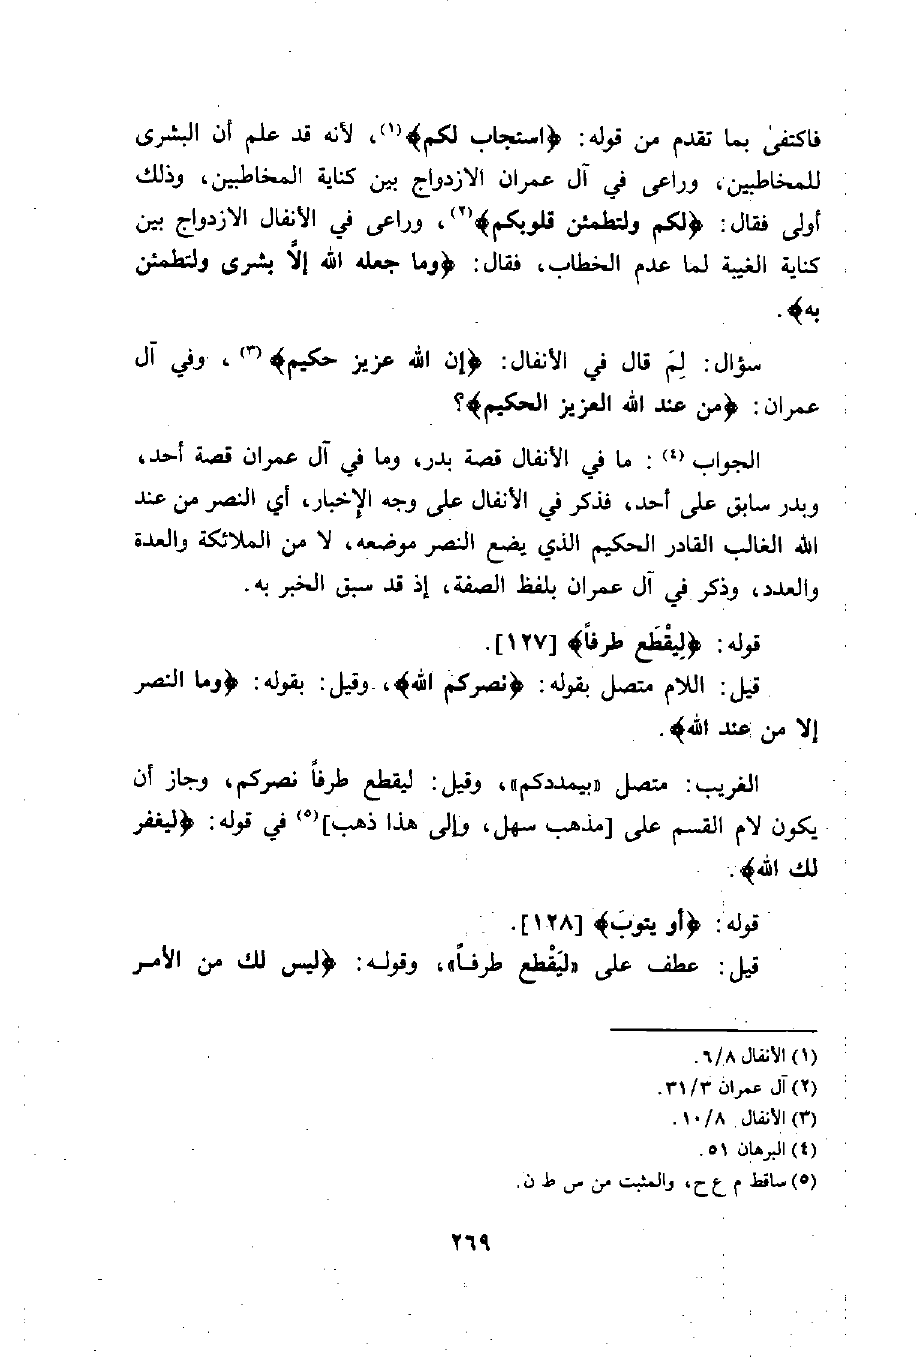 فاكتفىٰ بما تقدم من قوله: ﴿استجاب لكم﴾(١)، لأنه قد علم أن البشرى
للمخاطبين، وراعى في آل عمران الازدواج بين كناية المخاطبين، وذلك
أولى فقال: ﴿لكم ولتطمئن قلوبكم﴾(٢)، وراعى في الأنفال الازدواج بين
كناية الغيبة لما عدم الخطاب، فقال: ﴿وما جعله الله إلاَّ بشرى ولتطمئن
به﴾.
سؤال: لِمَ قال في الأنفال: ﴿إن الله عزيز حكيم﴾(٣)، وفي آل
عمران: ﴿من عند الله العزيز الحكيم﴾؟
الجواب(٤): ما في الأنفال قصة بدر، وما في آل عمران قصة أحد،
وبدر سابق على أحد، فذكر في الأنفال على وجه الإخبار، أي النصر من عند
الله الغالب القادر الحكيم الذي يضع النصر موضعه، لا من الملائكة والعدة
والعدد، وذكر في آل عمران بلفظ الصفة، إذ قد سبق الخبر به.
قوله: ﴿لِيقْطَع طرفاً﴾ [١٢٧].
قيل: اللام متصل بقوله: ﴿نصركم الله﴾، وقيل: بقوله: ﴿وما النصر
إلا من عند الله﴾.
الغريب: متصل «بيمددكم»، وقيل: ليقطع طرفاً نصركم، وجاز أن
يكون لام القسم على [مذهب سهل، وإلى هذا ذهب](٥) في قوله: ﴿ليغفر
لك الله﴾.
قوله: ﴿أو يتوبَ﴾ [١٢٨].
قيل: عطف على «ليَقْطع طرفاً»، وقوله: ﴿ليس لك من الأمر
(١) الأنفال ٦/٨.
(٢) آل عمران ٣١/٣.
(٣) الأنفال ١٠/٨.
(٤) البرهان ٥١.
(٥) ساقط م ع ح، والمثبت من س ط ن.
٢٦٩